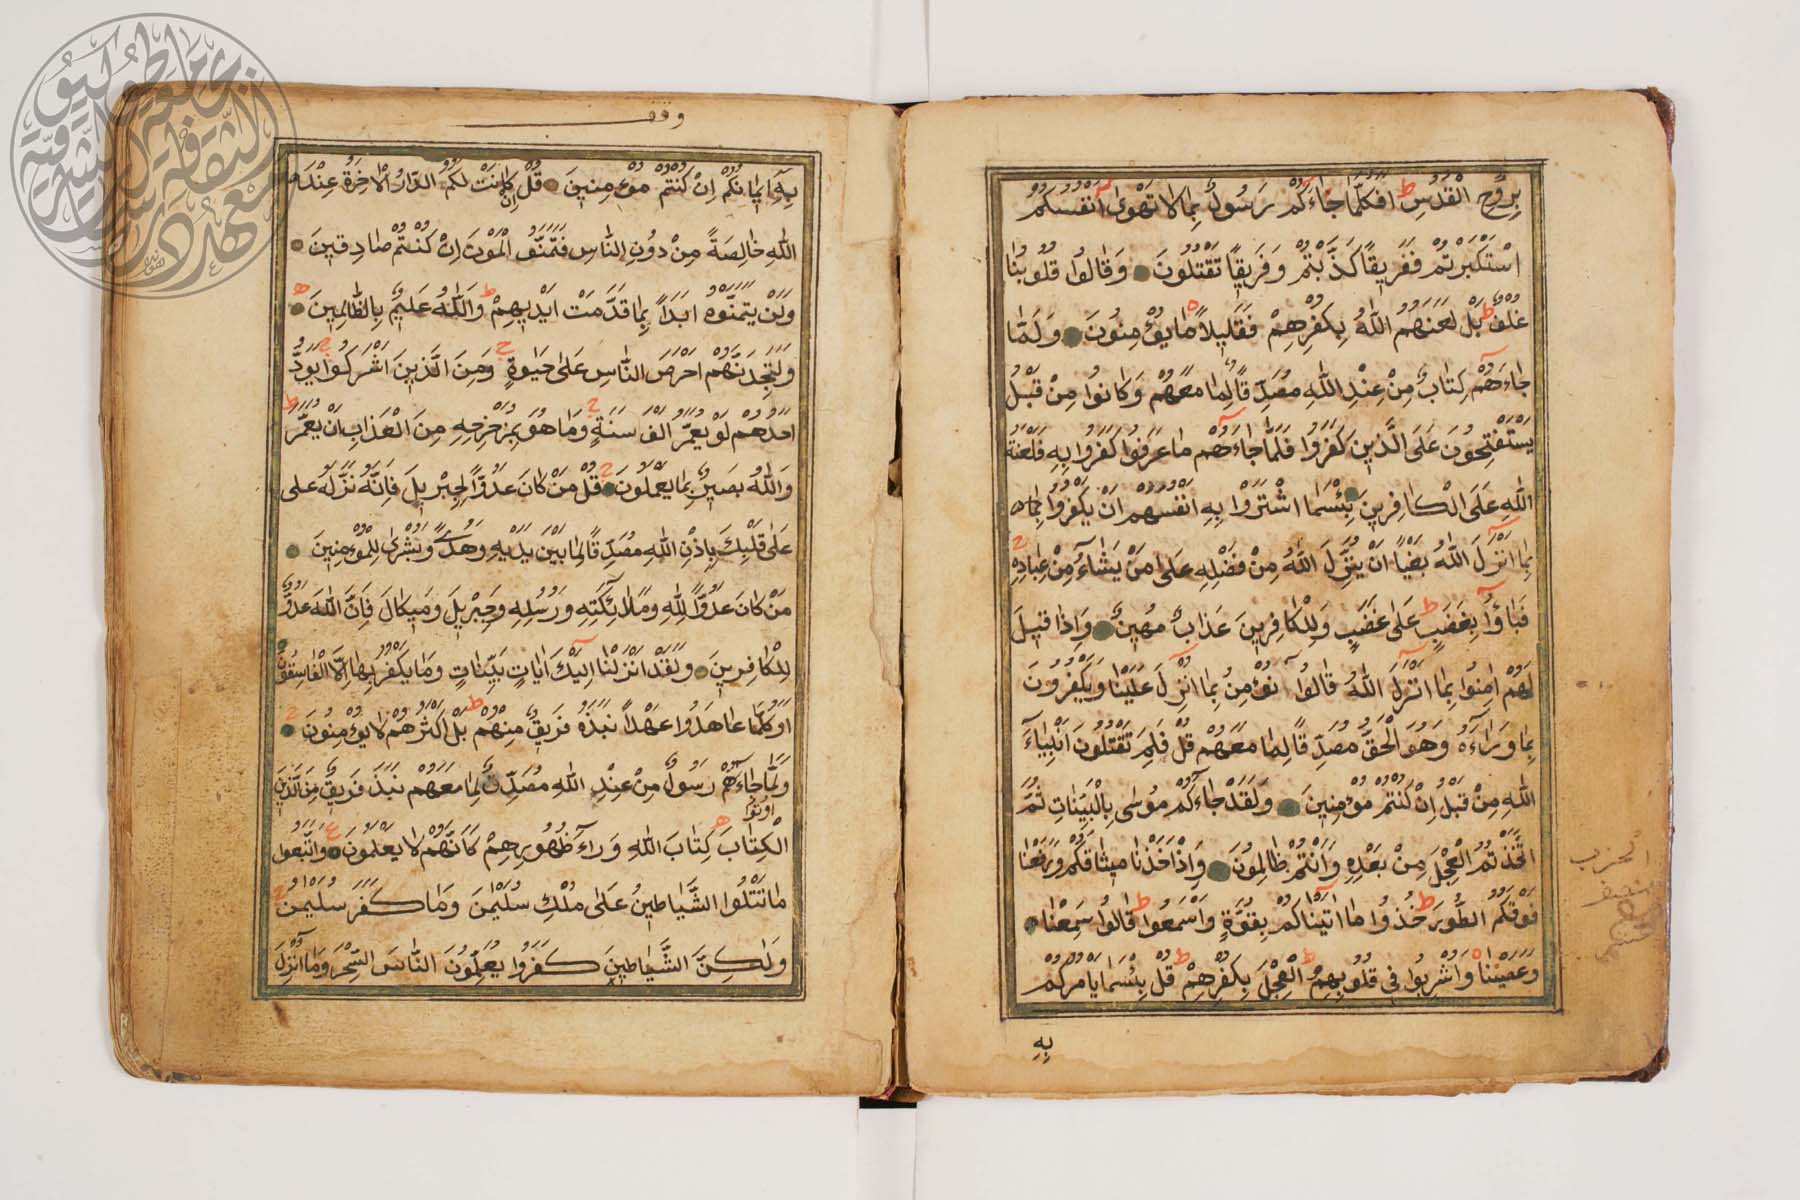 بِرُوحِ الْقُدُسِ ط اَفَكُلَّمَا جَاءَكُمْ رَسُولٌ بِمَا لَا تَهْوٰى اَنْفُسُكُمُ
اسْتَكْبَرْتُمْ فَفَرِيقًا كَذَّبْتُمْ وَفَرِيقًا تَقْتُلُونَ وَقَالُوا قُلُوبُنَا
غُلْفٌ ط بَلْ لَعَنَهُمُ اللّٰهُ بِكُفْرِهِمْ فَقَلِيلاً مَا يُؤْمِنُونَ وَلَمَّا
جَاءَهُمْ كِتَابٌ مِنْ عِنْدِ اللّٰهِ مُصَدِّقًا لِمَا مَعَهُمْ وَكَانُوا مِنْ قَبْلُ
يَسْتَفْتِحُونَ عَلَى الَّذِينَ كَفَرُوا فَلَمَّا جَاءَهُمْ مَا عَرَفُوا كَفَرُوا بِهِ فَلَعْنَةُ
اللّٰهِ عَلَى الْكَافِرِينَ بِئْسَمَا اشْتَرَوْا بِهِ اَنْفُسَهُمْ اَنْ يَكْفُرُوا بِمَا
بِمَا اَنْزَلَ اللّٰهُ بَغْيًا اَنْ يُنَزِّلَ اللّٰهُ مِنْ فَضْلِهِ عَلَى مَنْ يَشَاءُ مِنْ عِبَادِهِ ج
فَبَاؤُا بِغَضَبٍ عَلَى غَضَبٍ ط وَلِلْكَافِرِينَ عَذَابٌ مُهِينٌ وَاِذَا قِيلَ
لَهُمْ اٰمِنُوا بِمَا اَنْزَلَ اللّٰهُ قَالُوا نُؤْمِنُ بِمَا اُنْزِلَ عَلَيْنَا وَيَكْفُرُونَ
بِمَا وَرَاءَهُ وَهُوَ الْحَقُّ مُصَدِّقًا لِمَا مَعَهُمْ قُلْ فَلِمَ تَقْتُلُونَ اَنْبِيَاءَ
اللّٰهِ مِنْ قَبْلُ اِنْ كُنْتُمْ مُؤْمِنِينَ وَلَقَدْ جَاءَكُمْ مُوسٰى بِالْبَيِّنَاتِ ثُمَّ
اتَّخَذْتُمُ الْعِجْلَ مِنْ بَعْدِهِ وَاَنْتُمْ ظَالِمُونَ وَاِذْ اَخَذْنَا مِيثَاقَكُمْ وَرَفَعْنَا
فَوْقَكُمُ الطُّورَ ط خُذُوا مَا اٰتَيْنَاكُمْ بِقُوَّةٍ وَاسْمَعُوا ط قَالُوا سَمِعْنَا
وَعَصَيْنَا وَاُشْرِبُوا فِي قُلُوبِهِمُ الْعِجْلَ بِكُفْرِهِمْ ط قُلْ بِئْسَمَا يَاْمُرُكُمْ
بِهِ
الحزب
وقف
بِهِ اِيمَانُكُمْ اِنْ كُنْتُمْ مُؤْمِنِينَ قُلْ اِنْ كَانَتْ لَكُمُ الدَّارُ الْاٰخِرَةُ عِنْدَ
اللّٰهِ خَالِصَةً مِنْ دُونِ النَّاسِ فَتَمَنَّوُ الْمَوْتَ اِنْ كُنْتُمْ صَادِقِينَ
وَلَنْ يَتَمَنَّوْهُ اَبَدَاً بِمَا قَدَّمَتْ اَيْدِيهِمْ ط وَاللّٰهُ عَلِيمٌ بِالظَّالِمِينَ
وَلَتَجِدَنَّهُمْ اَحْرَصَ النَّاسِ عَلٰى حَيٰوةٍ ج وَمِنَ الَّذِينَ اَشْرَكُوا ج يَوَدُّ
اَحَدُهُمْ لَوْ يُعَمَّرُ اَلْفَ سَنَةٍ ج وَمَا هُوَ بِمُزَحْزِحِهِ مِنَ الْعَذَابِ اَنْ يُعَمَّرَ ط
وَاللّٰهُ بَصِيرٌ بِمَا يَعْمَلُونَ قُلْ مَنْ كَانَ عَدُوًّا لِجِبْرِيلَ فَاِنَّهُ نَزَّلَهُ عَلٰى
عَلٰى قَلْبِكَ بِاِذْنِ اللّٰهِ مُصَدِّقًا لِمَا بَيْنَ يَدَيْهِ وَهُدًى وَبُشْرٰى لِلْمُؤْمِنِينَ
مَنْ كَانَ عَدُوًّا لِلّٰهِ وَمَلَائِكَتِهِ وَرُسُلِهِ وَجِبْرِيلَ وَمِيكَالَ فَاِنَّ اللّٰهَ عَدُوٌّ
لِلْكَافِرِينَ وَلَقَدْ اَنْزَلْنَا اِلَيْكَ اٰيَاتٍ بَيِّنَاتٍ وَمَا يَكْفُرُ بِهَا اِلَّا الْفَاسِقُونَ
اَوَكُلَّمَا عَاهَدُوا عَهْدًا نَبَذَهُ فَرِيقٌ مِنْهُمْ ط بَلْ اَكْثَرُهُمْ لَا يُؤْمِنُونَ
وَلَمَّا جَاءَهُمْ رَسُولٌ مِنْ عِنْدِ اللّٰهِ مُصَدِّقٌ لِمَا مَعَهُمْ نَبَذَ فَرِيقٌ مِنَ الَّذِينَ
اُوتُوا
الْكِتَابَ كِتَابَ اللّٰهِ وَرَاءَ ظُهُورِهِمْ كَاَنَّهُمْ لَا يَعْلَمُونَ وَاتَّبَعُوا
مَا تَتْلُوا الشَّيَاطِينُ عَلٰى مُلْكِ سُلَيْمٰنَ وَمَا كَفَرَ سُلَيْمٰنُ
وَلٰكِنَّ الشَّيَاطِينَ كَفَرُوا يُعَلِّمُونَ النَّاسَ السِّحْرَ وَمَا اُنْزِلَ